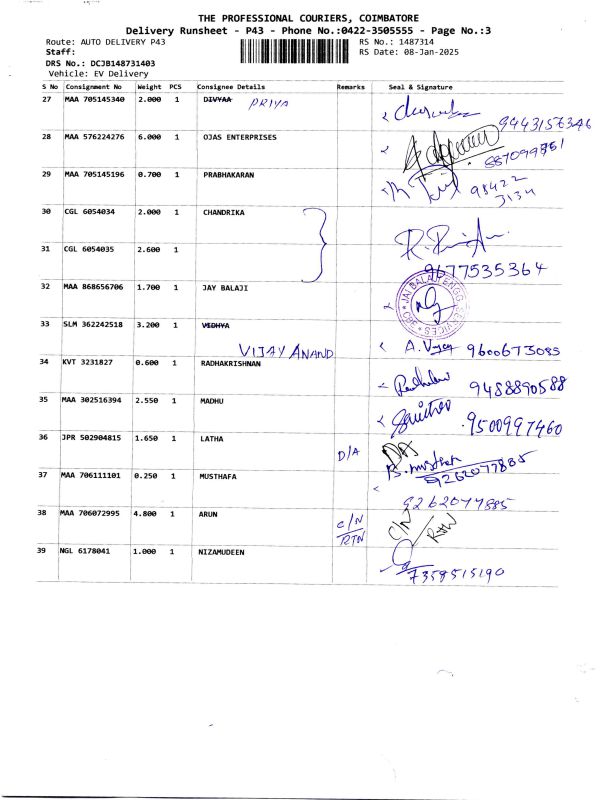 THE PROFESSIONAL COURIERS, COIMBATORE
Delivery Runsheet - P43 - Phone No.:0422-3505555 - Page No.:3
Route: AUTO DELIVERY P43 RS No.: 1487314
Staff: RS Date: 08-Jan-2025
DRS No.: DCJB148731403
Vehicle: EV Delivery
S No Consignment No Weight PCS Consignee Details Remarks Seal & Signature
27 MAA 705145340 2.000 1 DIVYAA PRIYA
9443157346
28 MAA 576224276 6.000 1 OJAS ENTERPRISES
29 MAA 705145196 0.700 1 PRABHAKARAN
98422
3134
30 CGL 6054034 2.000 1 CHANDRIKA
31 CGL 6054035 2.600 1
9677535364
32 MAA 868656706 1.700 1 JAY BALAJI
33 SLM 362242518 3.200 1 VIDHYA
VIJAY ANAND A. Vijay 9600673085
34 KVT 3231827 0.600 1 RADHAKRISHNAN
9488890588
35 MAA 302516394 2.550 1 MADHU
9500997460
36 JPR 502904815 1.650 1 LATHA D/A D/A
B. Musthafa
9262077885
37 MAA 706111101 0.250 1 MUSTHAFA
9262077885
38 MAA 706072995 4.800 1 ARUN C/N RTN C/N RTN
39 NGL 6178041 1.000 1 NIZAMUDEEN
7358515190